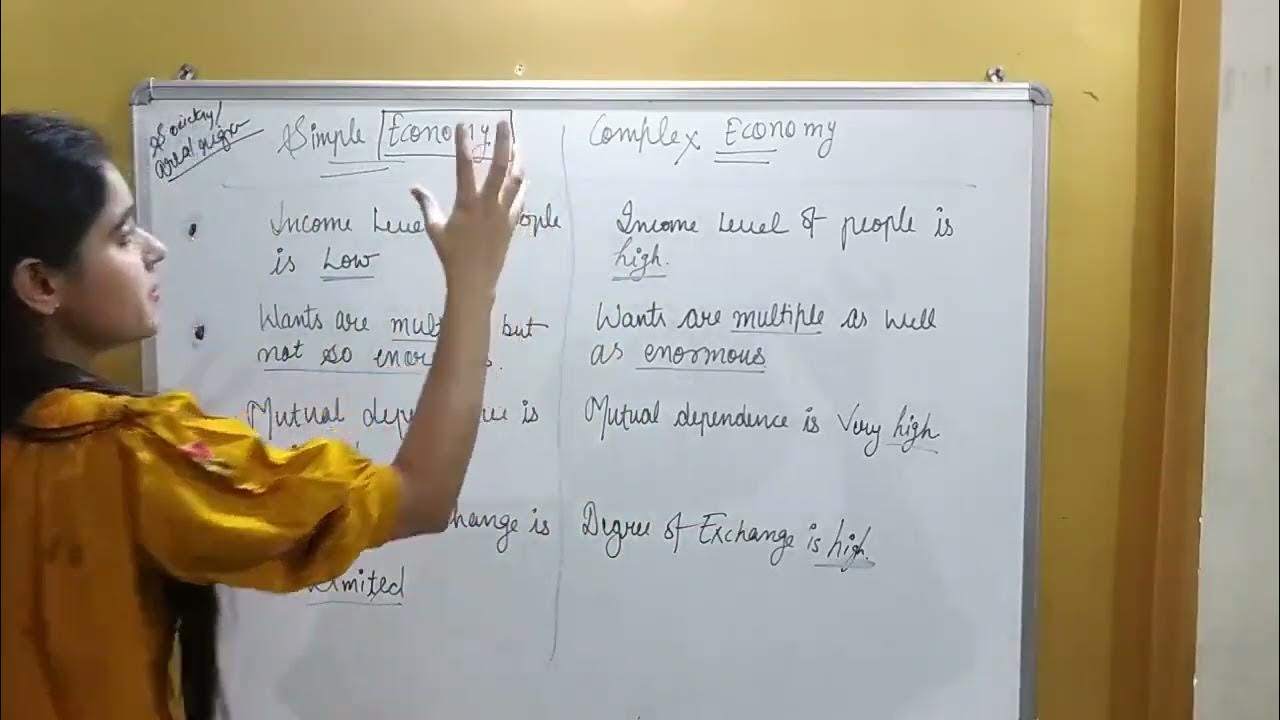 Society/
Simple Economy
Income Level
is Low
Wants are but
not so
Mutual is
is
Limited
Complex Economy
Income Level of people is
high.
Wants are multiple as well
as enormous
Mutual dependence is Very high
Degree of Exchange is high.